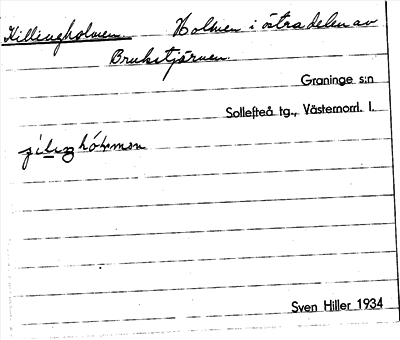 Killingholmen Holmen i östra delen av
Brukstjärnen.
Graninge s:n
Sollefteå tg., Västernorrl. l.
Sven Hiller 1934